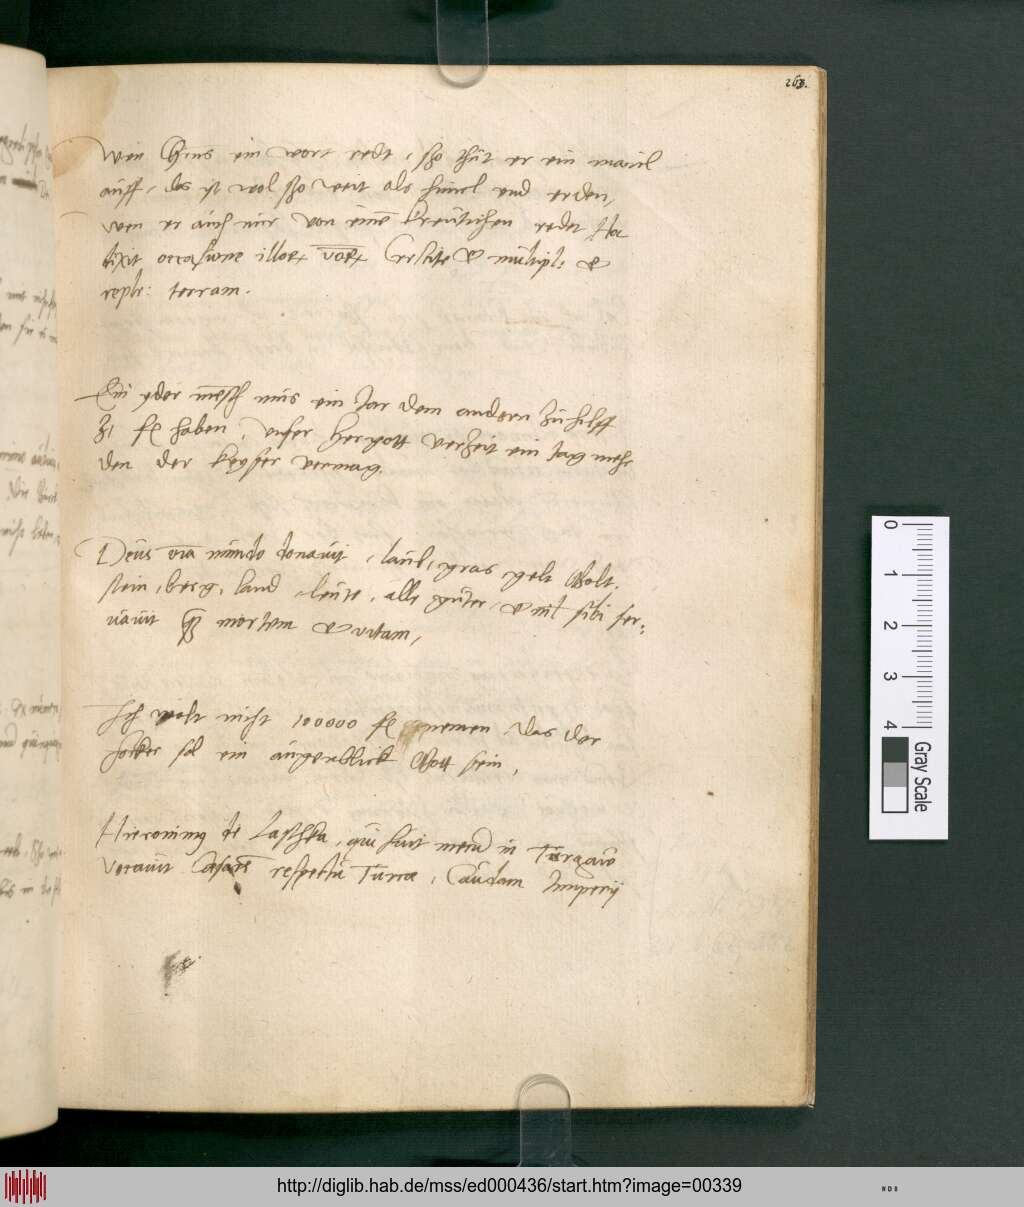 263.
wen Chrus ein wort redt, sho thut er ein maul
auff, das ist wol sho weit als himel und erden,
wen er auch nur von eine kreutichen redet
dixit occasione illor vor Crescite & multipl: &
reple: terram.
Ein yder mesch mus ein Jar dem andern zu hilff
fl haben, unser hergott verzert ein tag mehr
den der keyser vermag.
Deus oia mundo donavit, laub, gras gelt Golt,
stein, berg, land leute, alle guter, & nil sibi ser:
vavit mortem & vitam,
Ich wolt nicht 100000 fl nemen, das der
hocker sol ein augenblick Gott sein,
Hieronimus de Laschka, qui fuit mecu in Turgaw
vocavit Cesare respectu Turcae, Caudam Imperij
0
1
2
3
4
Gray Scale
http://diglib.hab.de/mss/ed000436/start.htm?image=00339